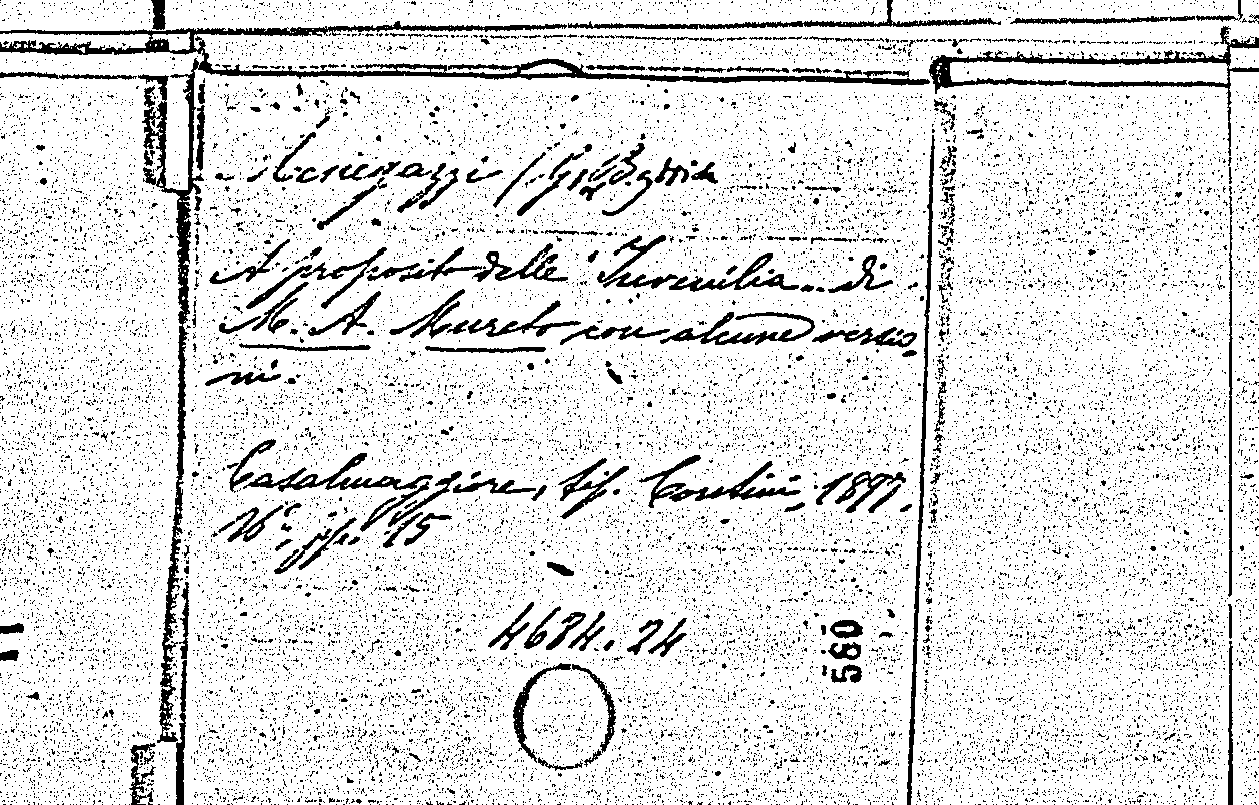 Menegazzi (G. Battista
A proposito delle "Iuvenilia" di
M. A. Mureto con alcune versio
ni.
Casalmaggiore, tip. Contini, 1897.
16°, pp. 15
4684.24
560